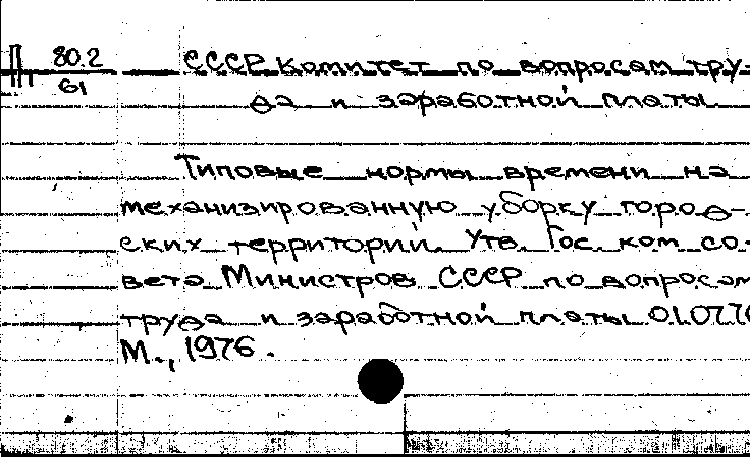 П 80.2
61
СССР. Комитет по вопросам тру-
да и заработной платы.
Типовые нормы времени на
механизированную уборку город-
ских территорий. Утв. Гос. ком. со-
вета Министров СССР по вопросам
труда и заработной платы 01.07.76
М., 1976.